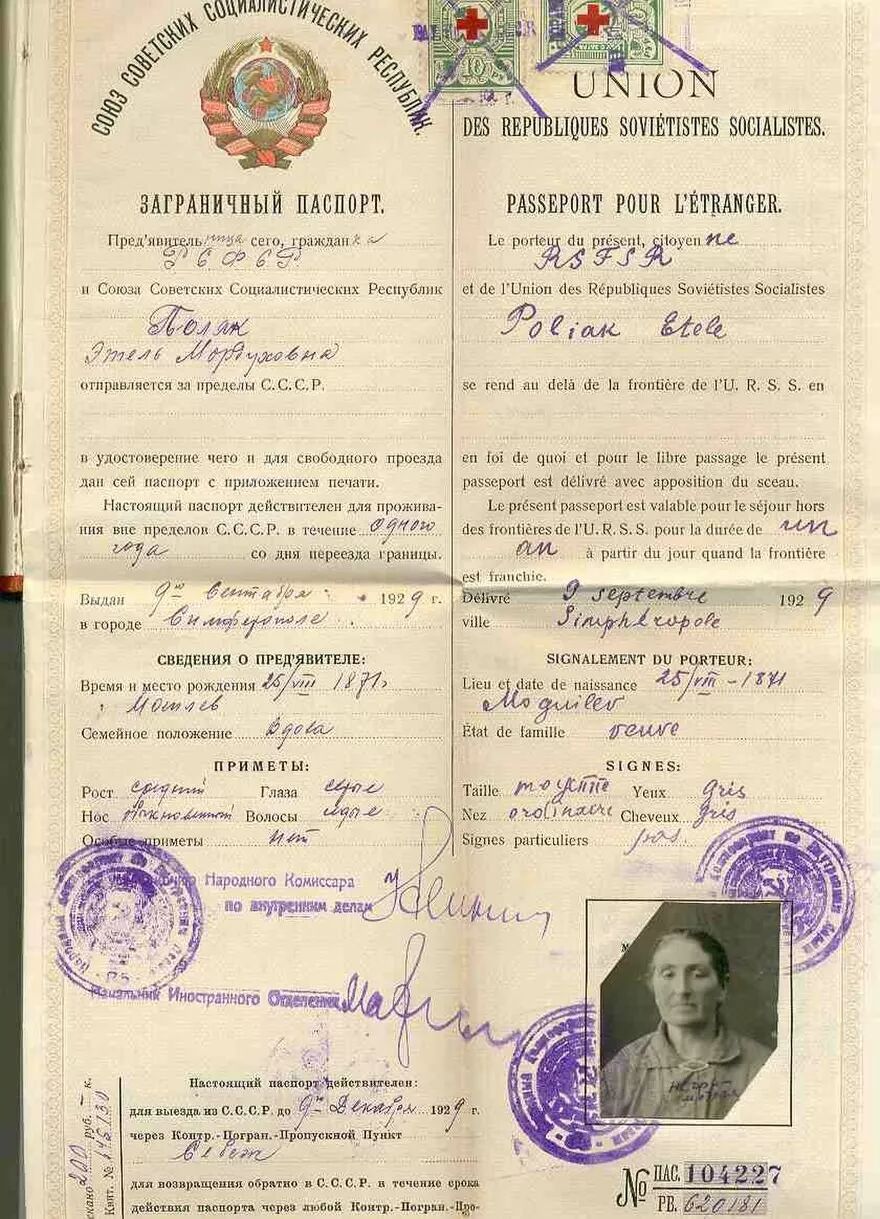 СОЮЗ СОВЕТСКИХ СОЦИАЛИСТИЧЕСКИХ РЕСПУБЛИК.
ЗАГРАНИЧНЫЙ ПАСПОРТ.
Пред'явительница сего, гражданка
РСФСР
и Союза Советских Социалистических Республик
Поляк
Этель Мордуховна
отправляется за пределы С.С.С.Р.
в удостоверение чего и для свободного проезда
дан сей паспорт с приложением печати.
Настоящий паспорт действителен для прожива-
ния вне пределов С.С.С.Р. в течение одного
года со дня переезда границы.
Выдан 9го Сентября 1929 г.
в городе Симферополе
СВЕДЕНИЯ О ПРЕД'ЯВИТЕЛЕ:
Время и место рождения 25/VIII 1871
Могилев
Семейное положение Вдова
ПРИМЕТЫ:
Рост средний Глаза серые
Нос обыкновенный Волосы седые
Особые приметы нет
10
UNION
DES REPUBLIQUES SOVIÉTISTES SOCIALISTES.
PASSEPORT POUR L'ÉTRANGER.
Le porteur du présent, citoyenne
RSFSR
et de l'Union des Républiques Soviétistes Socialistes
Poliak Etele
se rend au delà de la frontière de l'U. R. S. S. en
en foi de quoi et pour le libre passage le présent
passeport est délivré avec apposition du sceau.
Le présent passeport est valable pour le séjour hors
des frontières de l'U. R. S. S. pour la durée de un
an à partir du jour quand la frontière
est franchie.
Délivré 9 septembre 1929
ville Simphéropole
SIGNALEMENT DU PORTEUR:
Lieu et date de naissance 25/VIII - 1871
Moguilev
État de famille veuve
SIGNES:
Taille moyenne Yeux gris
Nez ordinaire Cheveux gris
Signes particuliers pas.
Народного Комиссара
по внутренним делам
Начальник Иностранного Отделения
Настоящий паспорт действителен:
для выезда из С.С.С.Р. до 9го Декабря 1929 г.
через Контр.-Погран.-Пропускной Пункт
Себеж
для возвращения обратно в С.С.С.Р. в течение срока
действия паспорта через любой Контр.-Погран.-Про-
200 руб. — к.
Квит. №
№ ПАС. 104227
РВ. 620181